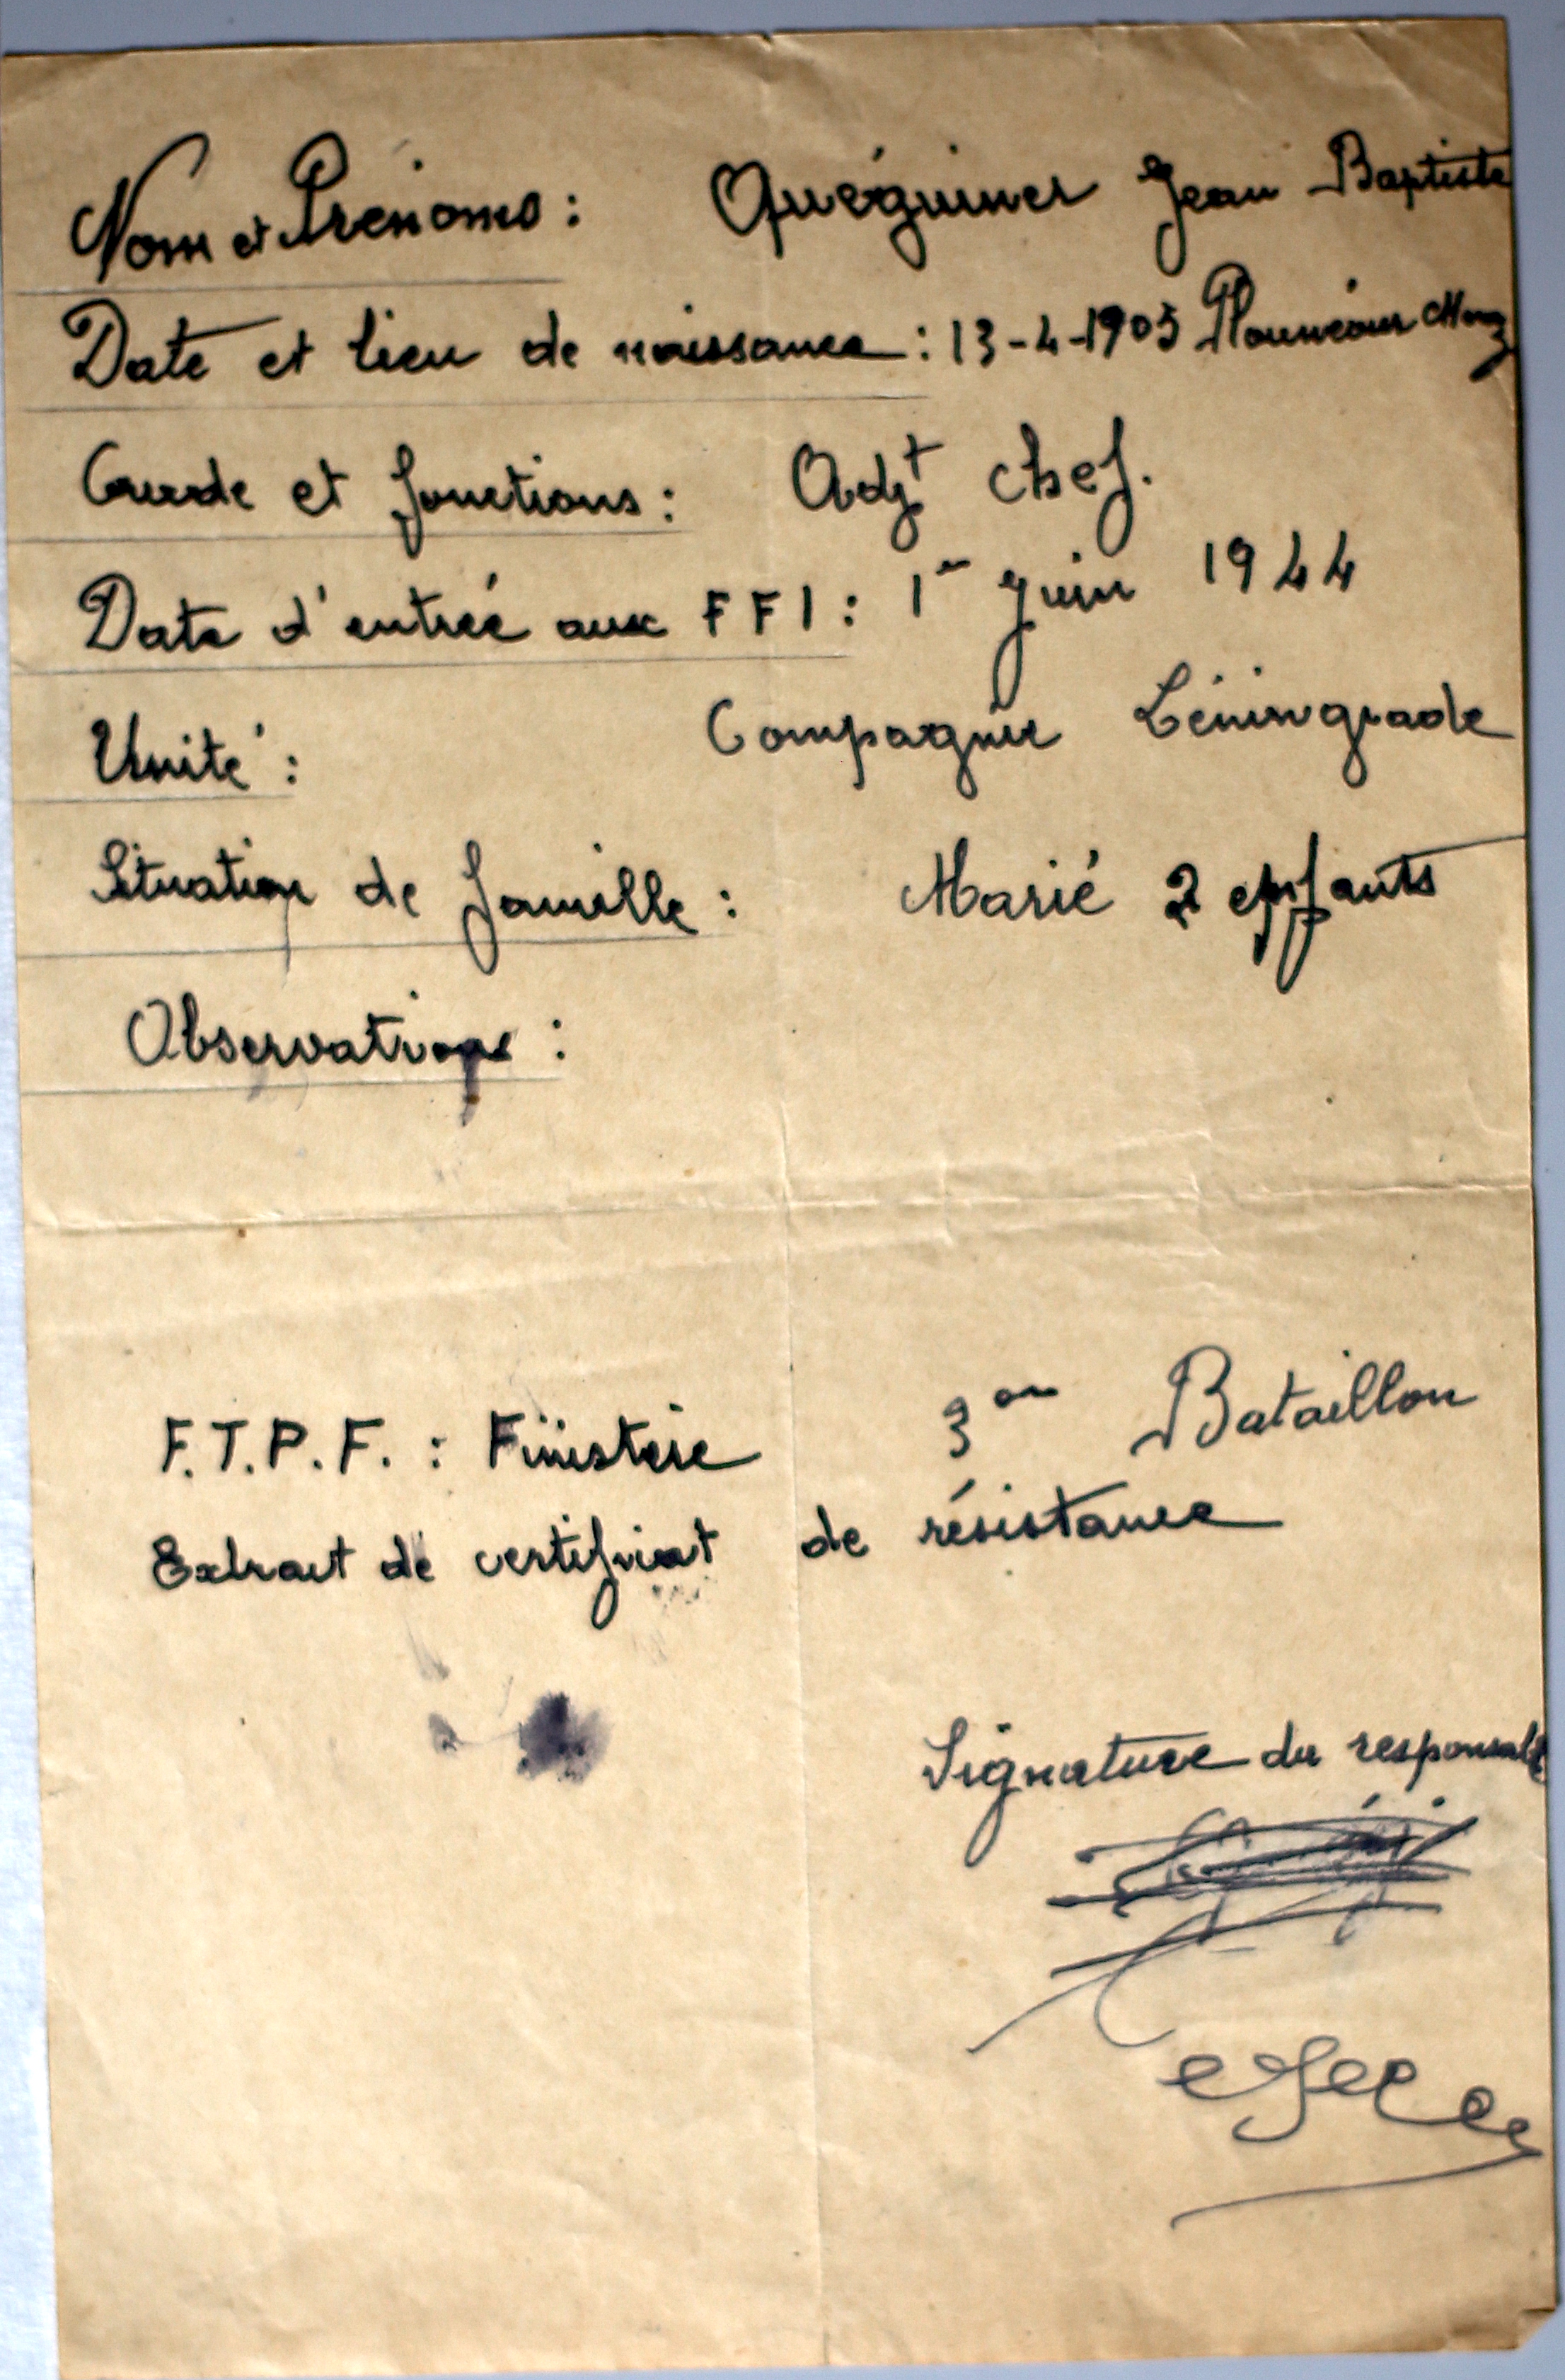 Nom et Prénoms : Quéguiner Jean Baptiste
Date et lieu de naissance : 13-4-1905 Plounéour Menez
Grade et fonctions : Adjt chef.
Date d'entrée aux FFI : 1er Juin 1944
Unité : Compagnie Léninegrade
Situation de famille : Marié 2 enfants
Observations :
F.T.P.F. : Finistère 3em Bataillon
Extrait de certificat de résistance
Signature du responsable